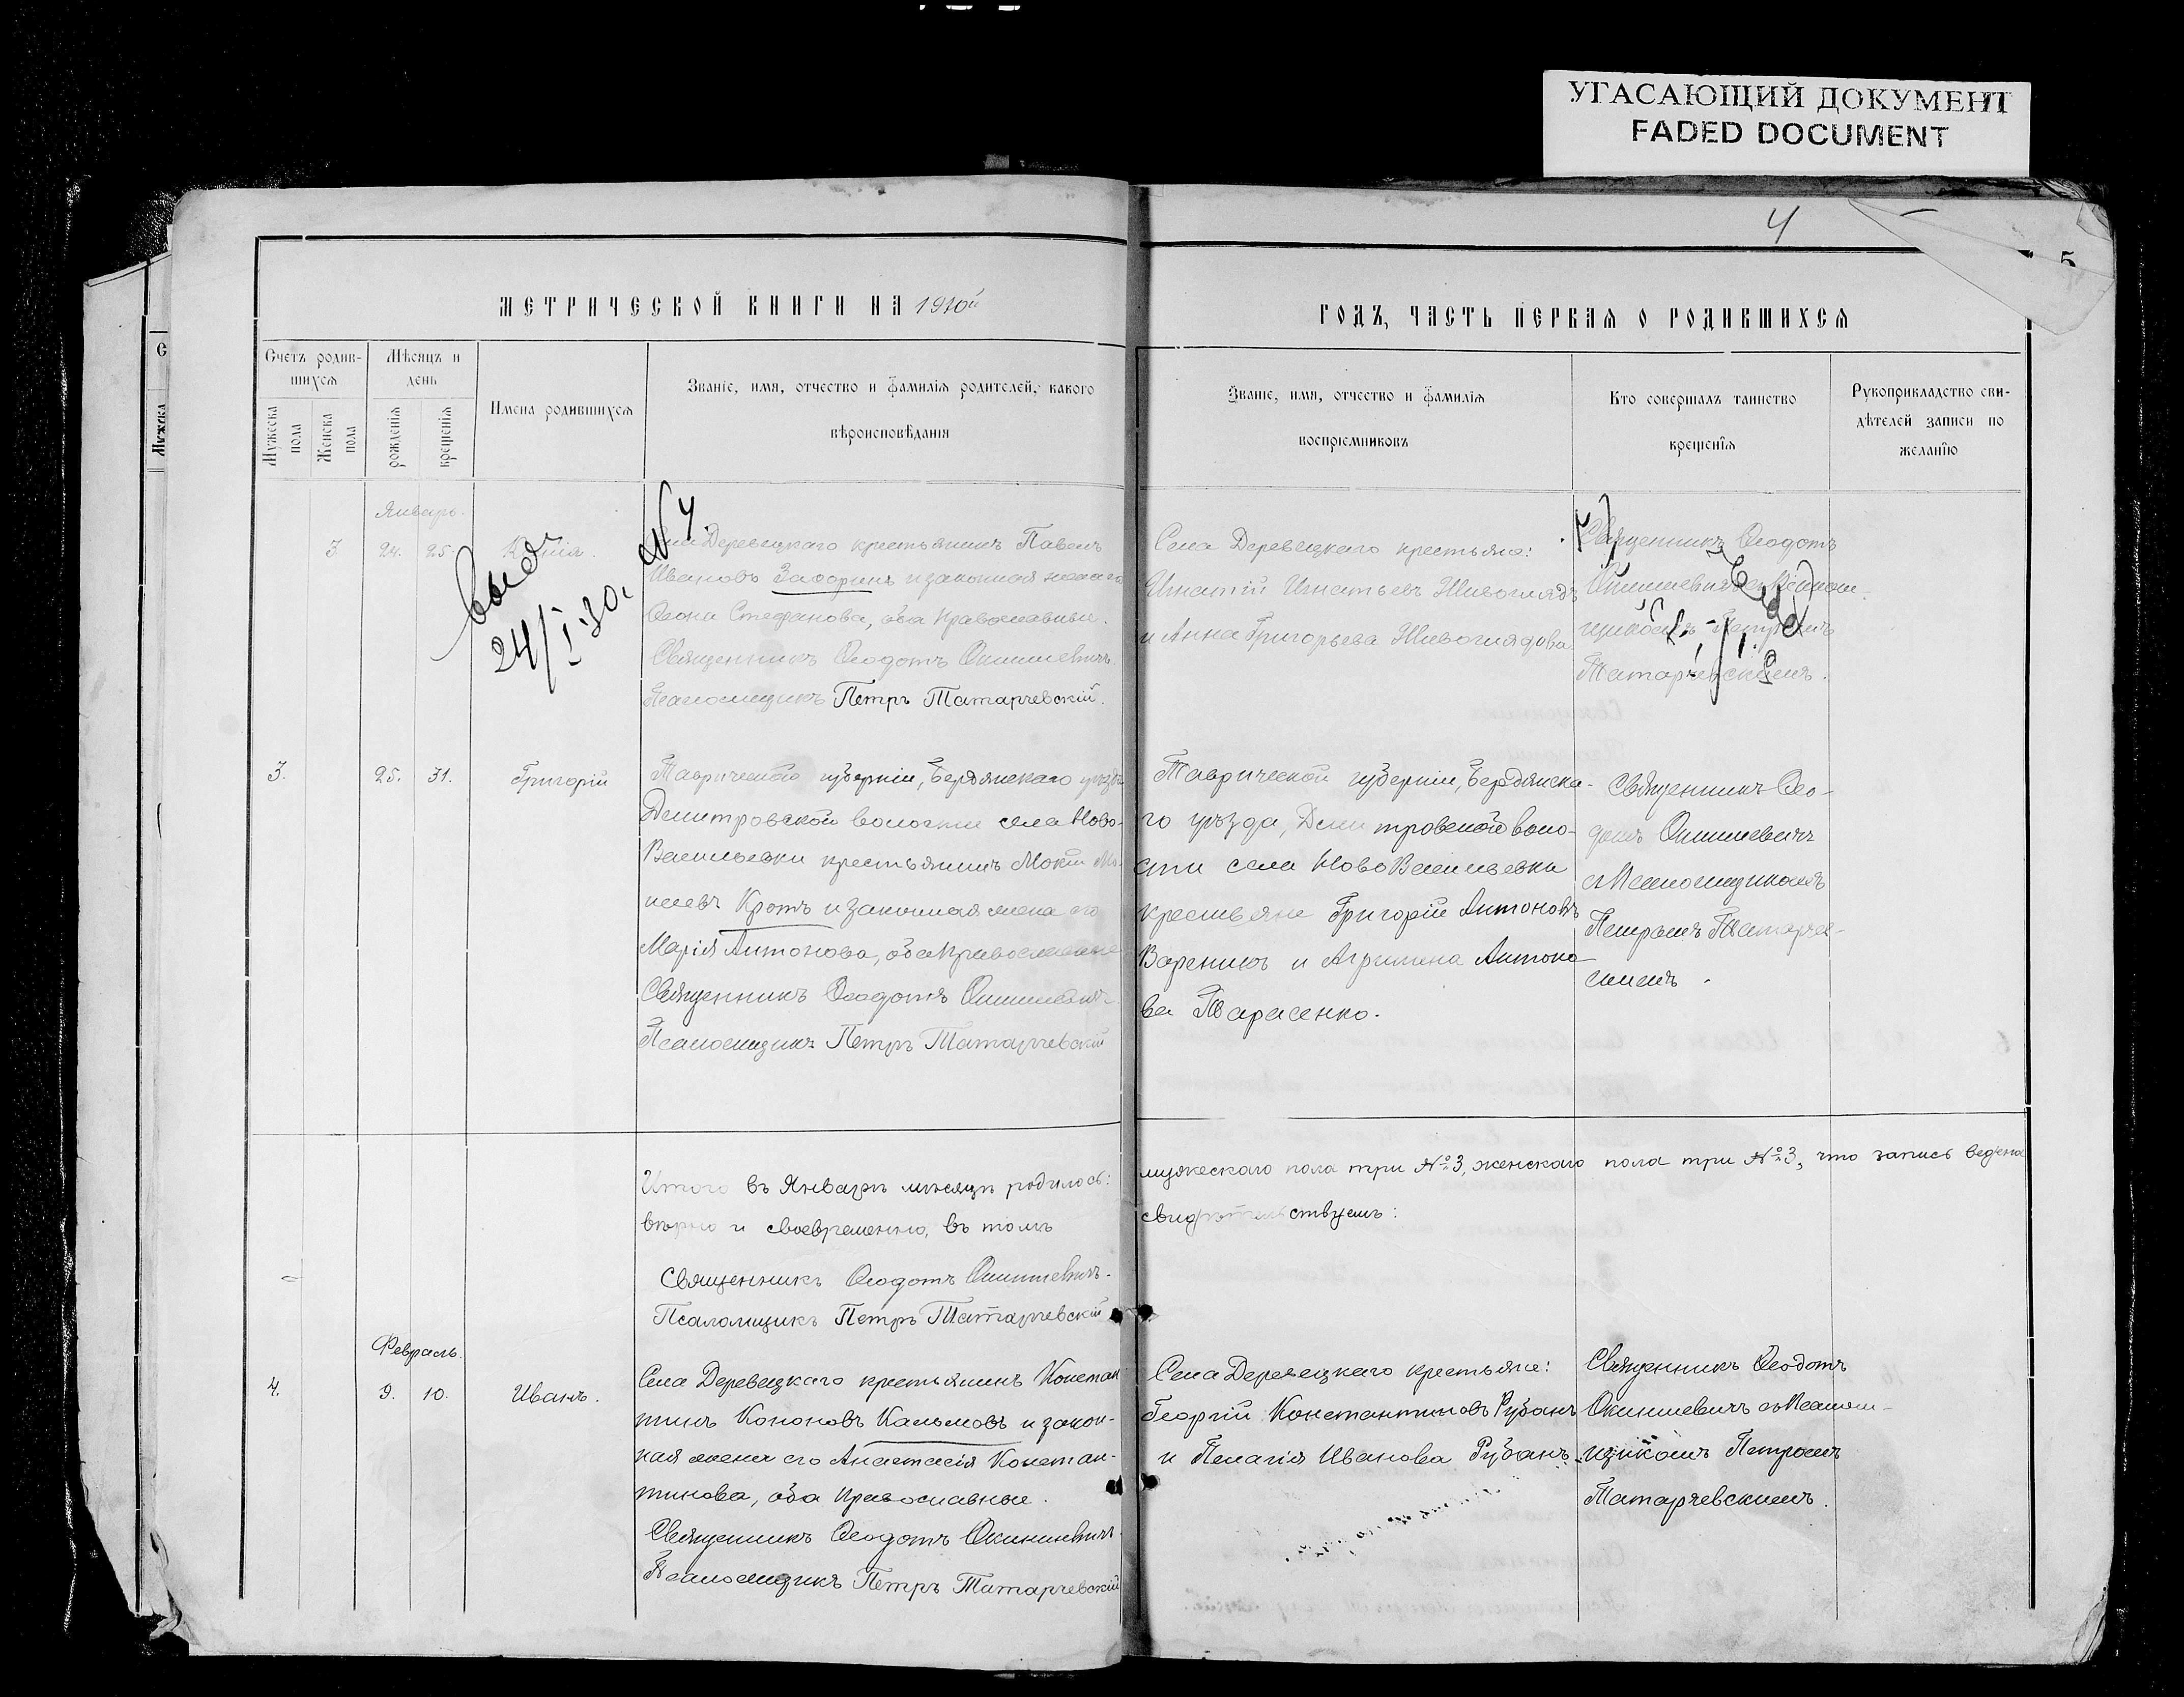 УГАСАЮЩИЙ ДОКУМЕНТ
FADED DOCUMENT
4
5
МЕТРИЧЕСКОЙ КНИГИ НА 1910й
ГОДЪ, ЧАСТЬ ПЕРВАЯ О РОДИВШИХСЯ
Счетъ родив-
шихся
Мужеска
пола
Женска
пола
Мѣсяцъ и
день
рожденія
крещенія
Имена родившихся
Званіе, имя, отчество и фамилія родителей, какого
вѣроисповѣданія
Званіе, имя, отчество и фамилія
воспріемниковъ
Кто совершалъ таинство
крещенія
Рукоприкладство сви-
дѣтелей записи по
желанію
Январь.
3 24. 25.
24/I 30.
№ 4.
Деревецкаго крестьянинъ Павелъ
Ивановъ и законная жена его
Стефанова, оба православные.
Священникъ Ѳеодотъ Окиншевичъ
Псаломщикъ Петръ Татарчевскій.
Села Деревецкаго крестьяне:
Игнатій Игнатьевъ Живоглядъ
и Анна Григорьева Живоглядова
Священникъ Ѳеодотъ
Окиншевичъ
щикомъ Петромъ
Татарчевскимъ.
3. 25. 31. Григорій
Таврической губерніи, Бердянскаго уѣзда
Дмитровской волости села Ново-
Васильевки крестьянинъ Мокій
Кротъ и законная жена его
Марія Антонова, оба православные
Священникъ Ѳеодотъ Окиншевичъ
Псаломщикъ Петръ Татарчевскій
Таврической губерніи, Бердянска-
го уѣзда, Дмитровской воло-
сти села НовоВасильевки
крестьяне Григорій Антоновъ
Вареникъ и Агрипина Антоно-
ва Тарасенко.
Священникъ Ѳео-
дотъ Окиншевичъ
съ Псаломщикомъ
Петромъ Татарчев-
скимъ.
Итого въ Январѣ мѣсяцѣ родилось:
мужескаго пола три №3, женскаго пола три №3, что запись ведена
вѣрно и своевременно, въ томъ
свидѣтельствуемъ:
Священникъ Ѳеодотъ Окиншевичъ.
Псаломщикъ Петръ Татарчевскій
Февраль.
4. 9. 10. Иванъ.
Села Деревецкаго крестьянинъ Констан-
тинъ Кононовъ Калымовъ и закон-
ная жена его Анастасія Констан-
тинова, оба православные.
Священникъ Ѳеодотъ Окиншевичъ
Псаломщикъ Петръ Татарчевскій
Села Деревецкаго крестьяне:
Георгій Константиновъ Рубанъ
и Пелагія Иванова Рубанъ.
Священникъ Ѳеодотъ
Окиншевичъ съ Псалом-
щикомъ Петромъ
Татарчевскимъ.